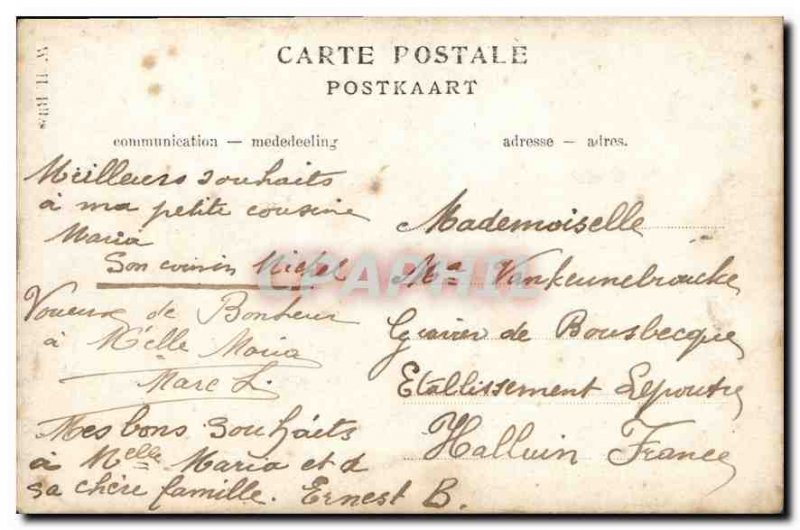 CARTE POSTALE
POSTKAART
communication — mededeeling
Meilleurs souhaits
à ma petite cousine
Maria
Son cousin Michel
de Bonheur
à Melle Maria
Marc L.
Mes bons souhaits
à Melle Maria et à
sa chère famille. Ernest B.
adresse — adres.
Mademoiselle
Ma Vankeunebroucke
de Bousbecque
Etablissement Lepoutre
Halluin France
CPAPHIL